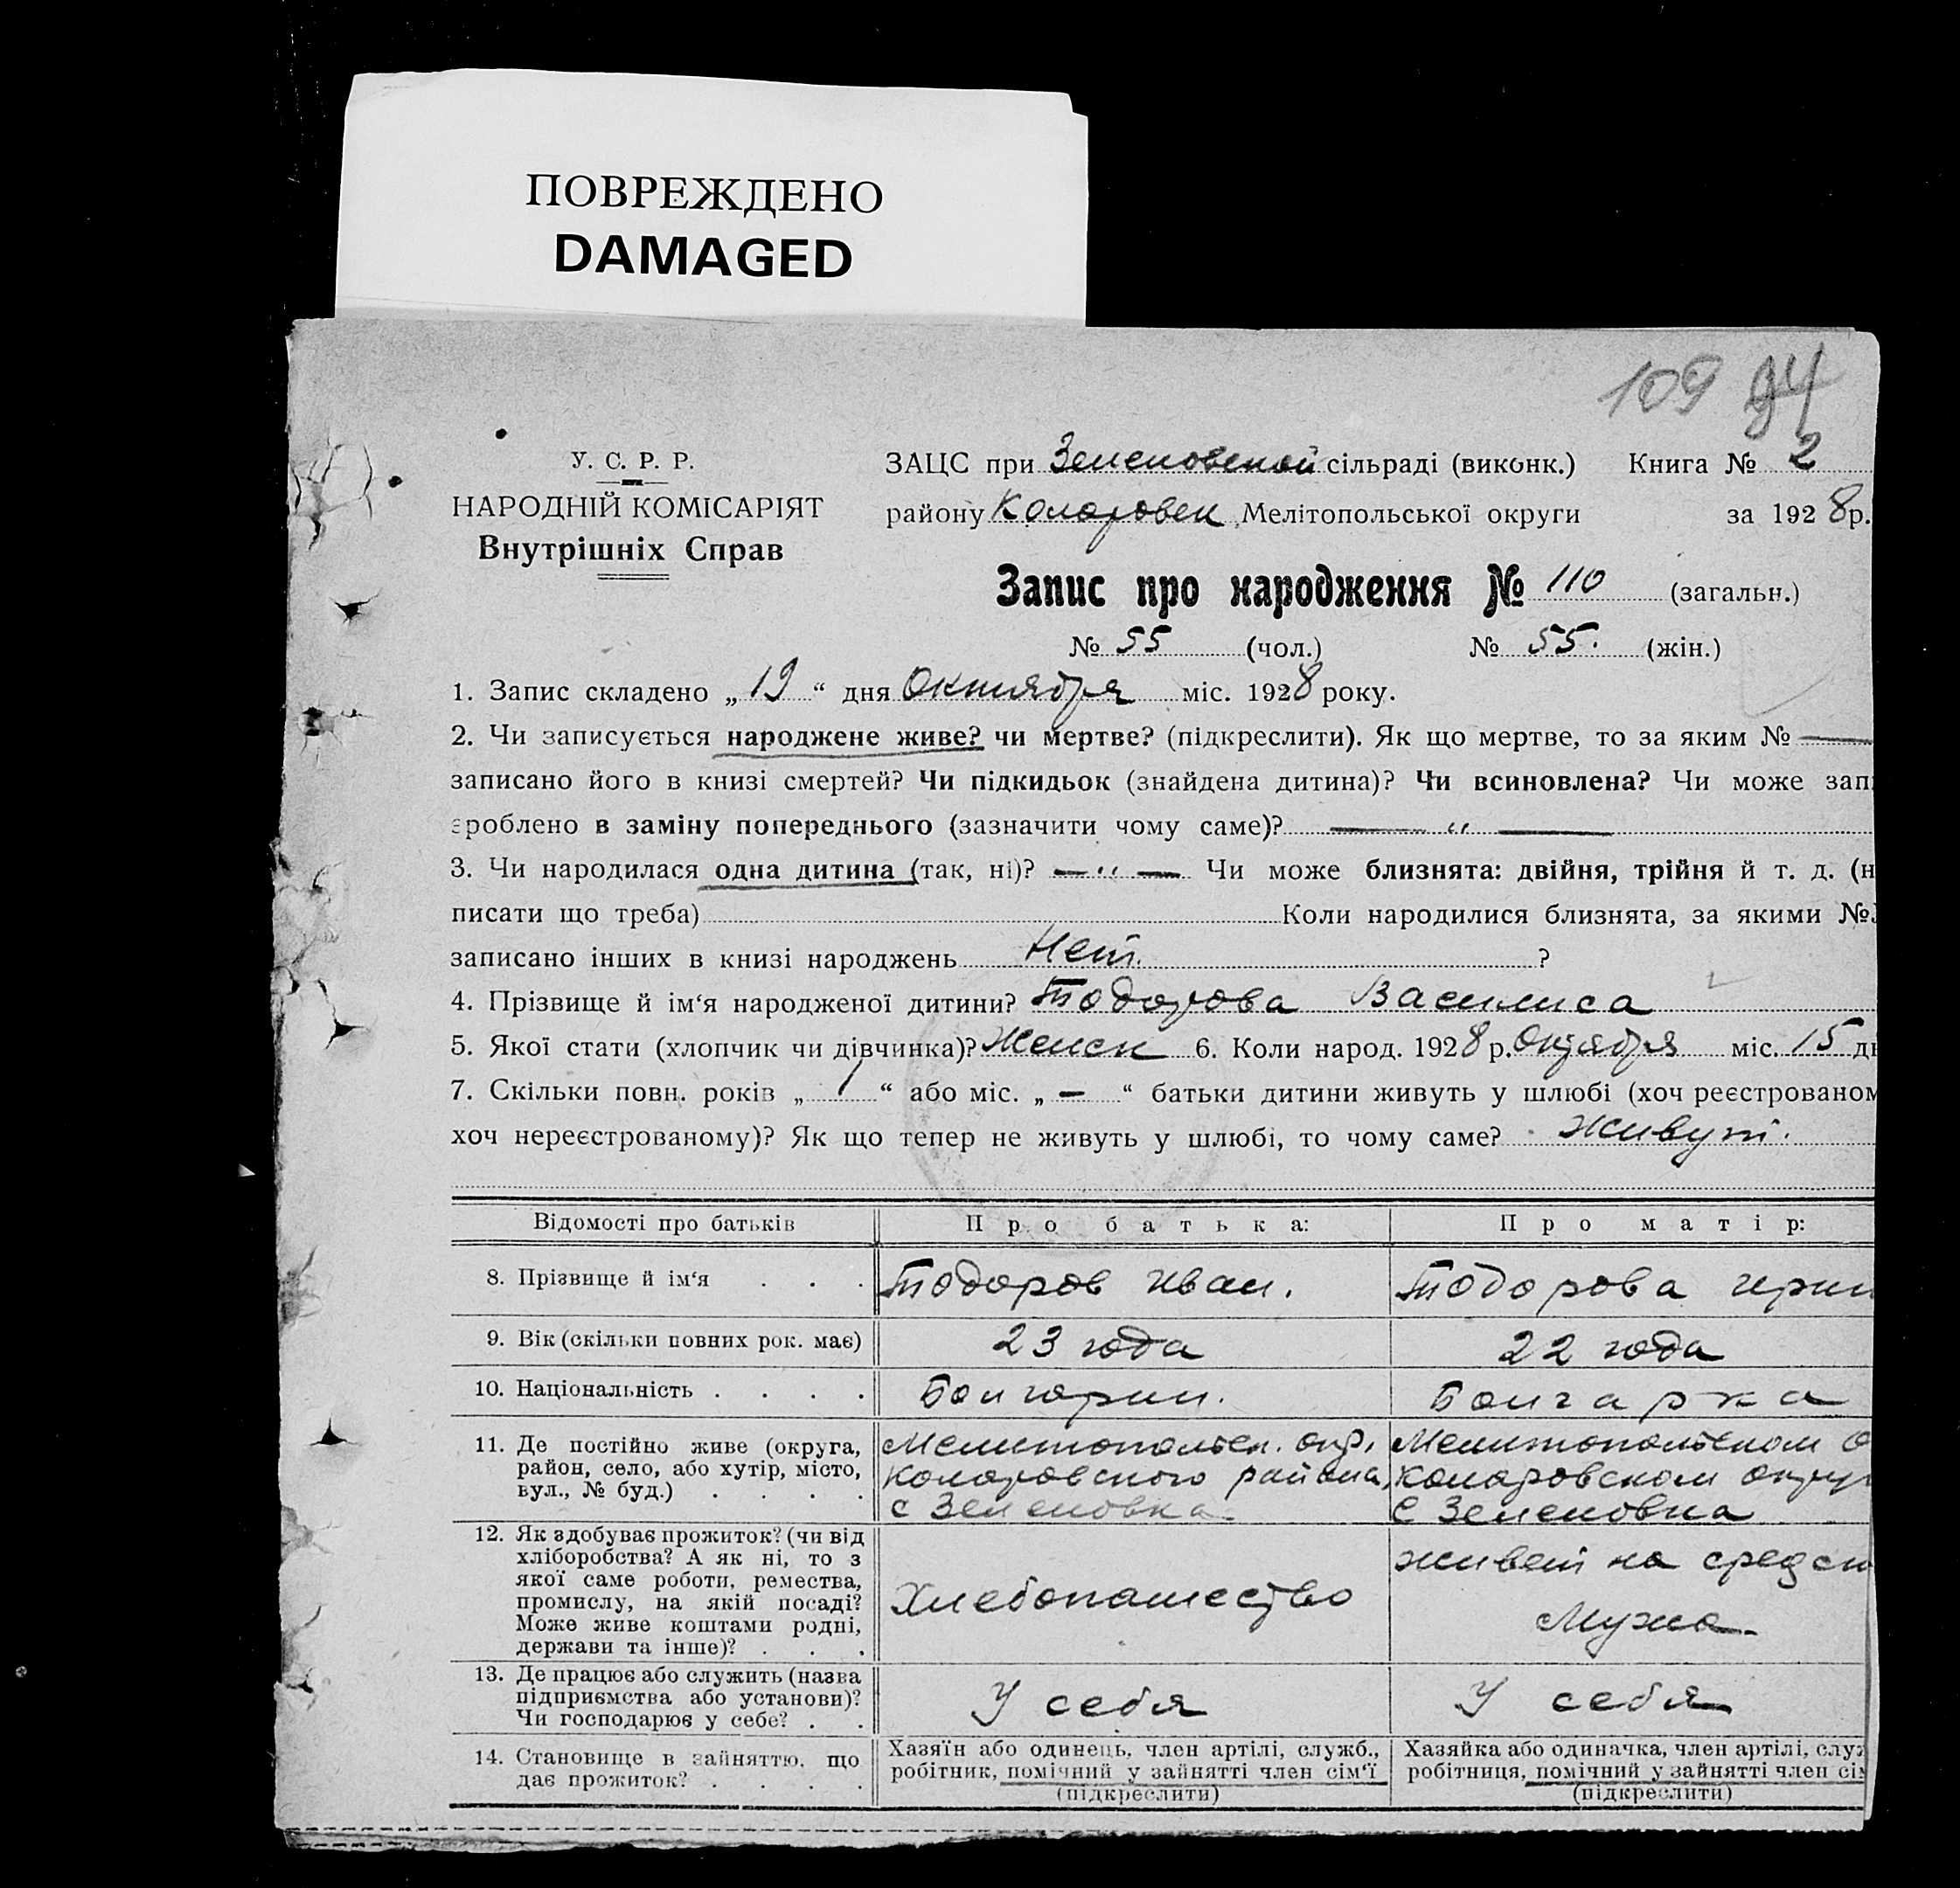 ПОВРЕЖДЕНО
DAMAGED
109 94
У. С. Р. Р.
НАРОДНІЙ КОМІСАРІЯТ
Внутрішніх Справ
ЗАЦС при Зеленовской сільраді (виконк.) Книга № 2
району Коларовск Мелітопольської округи за 1928 р.
Запис про народження № 110 (загальн.)
№ 55 (чол.) № 55. (жін.)
1. Запис складено „ 19 “ дня Октября міс. 1928 року.
2. Чи записується народжене живе? чи мертве? (підкреслити). Як що мертве, то за яким № —
записано його в книзі смертей? Чи підкидьок (знайдена дитина)? Чи всиновлена? Чи може зап
зроблено в заміну попереднього (зазначити чому саме)? — „ —
3. Чи народилася одна дитина (так, ні)? — „ — Чи може близнята: двійня, трійня й т. д. (н
писати що треба) Коли народилися близнята, за якими №
записано інших в книзі народжень Нет. ?
4. Прізвище й ім‘я народженої дитини? Тодорова Василиса
5. Якої стати (хлопчик чи дівчинка)? Женск 6. Коли народ. 1928 р. Октября міс. 15 дн
7. Скільки повн. років „ 1 “ або міс. „ — “ батьки дитини живуть у шлюбі (хоч реєстрованом
хоч нереєстрованому)? Як що тепер не живуть у шлюбі, то чому саме? Живут.
Відомості про батьків Про батька: Про матір:
8. Прізвище й ім‘я . . . Тодоров Иван. Тодорова Ирин
9. Вік (скільки повних рок. має) 23 года 22 года
10. Національність . . . . Болгарин. Болгарка
11. Де постійно живе (округа, Мелитопольск. окр. Мелитопольском о
район, село, або хутір, місто, Коларовского района, Коларовском округ
вул., № буд.) . . . . с Зеленовка. с Зеленовка
12. Як здобуває прожиток? (чи від
хліборобства? А як ні, то з живет на средст
якої саме роботи, ремества,
промислу, на якій посаді? Хлебопашество
Може живе коштами родні, Мужа.
держави та інше)? . . .
13. Де працює або служить (назва
підприємства або установи)? У себя У себя
Чи господарює у себе? . .
14. Становище в зайняттю, що Хазяїн або одинець, член артілі, служб., Хазяйка або одиначка, член артілі, служ
дає прожиток? . . . . робітник, помічний у зайнятті член сім‘ї робітниця, помічний у зайнятті член сім
(підкреслити) (підкреслити)